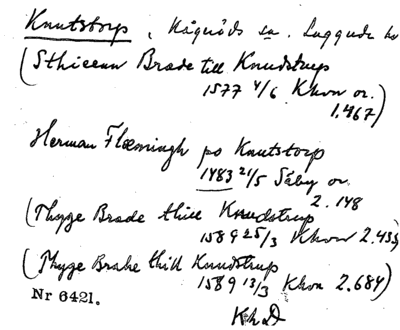 Knutstorp, Kågeröds sn. Luggude hd
(Sthieenn Brade till Knudstrup
1577 4/6 Khvn or.
1.467)
Herman Flæmingh po Knutstorp
1483 21/5 Säby or.
2.148
(Thyge Brade thiill Knudstrup
1589 25/3 Khvn 2.435)
(Thyge Brahe thill Knudstrup
1589 13/3 Khvn 2.684)
Nr 6421.
KhD